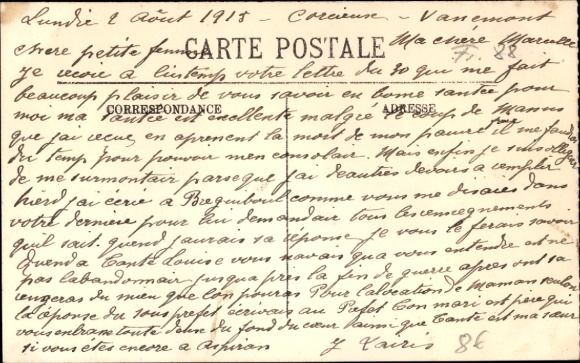 Lundie 2 Août 1915 - Corcieux - Vanemont
Chere petite femme Ma chere Marcelle
CARTE POSTALE
Fr. 88
Je recoie a linstemp votre lettre du 30 qui me fait
beaucoup plaisir de vous savoir en bonne santee pour
CORRESPONDANCE
ADRESSE
moi ma santee est excellente malgré le coup de
que jai recue en aprenent la mort de mon pauvre il me faudra
du temp pour pouvoir men consolair. Mais enfin je suis obliger
de me surmontair parseque jai deautres devoirs a remplir
hierd jai ecrie a comme vous me disaies dans
votre derniere pour lui demandair tous les renseignements
quil sait. quend jaurais sa réponse je vous le ferais savoir
Quend a Tante Louise vous navais qua vous entendre et ne
pas labandonnair jusqua près la fin de guerre apres ont sa
rengeras du mieu que lon pouras Pour lalocation de Maman selon
la réponse du sous prefet ecrivais au Prefet Ton mari et pere qui
vous enbrasse toute deux du fond du cœur ainsi que Tante et ma sœur
si vous étes encore a Aspiran
J
86